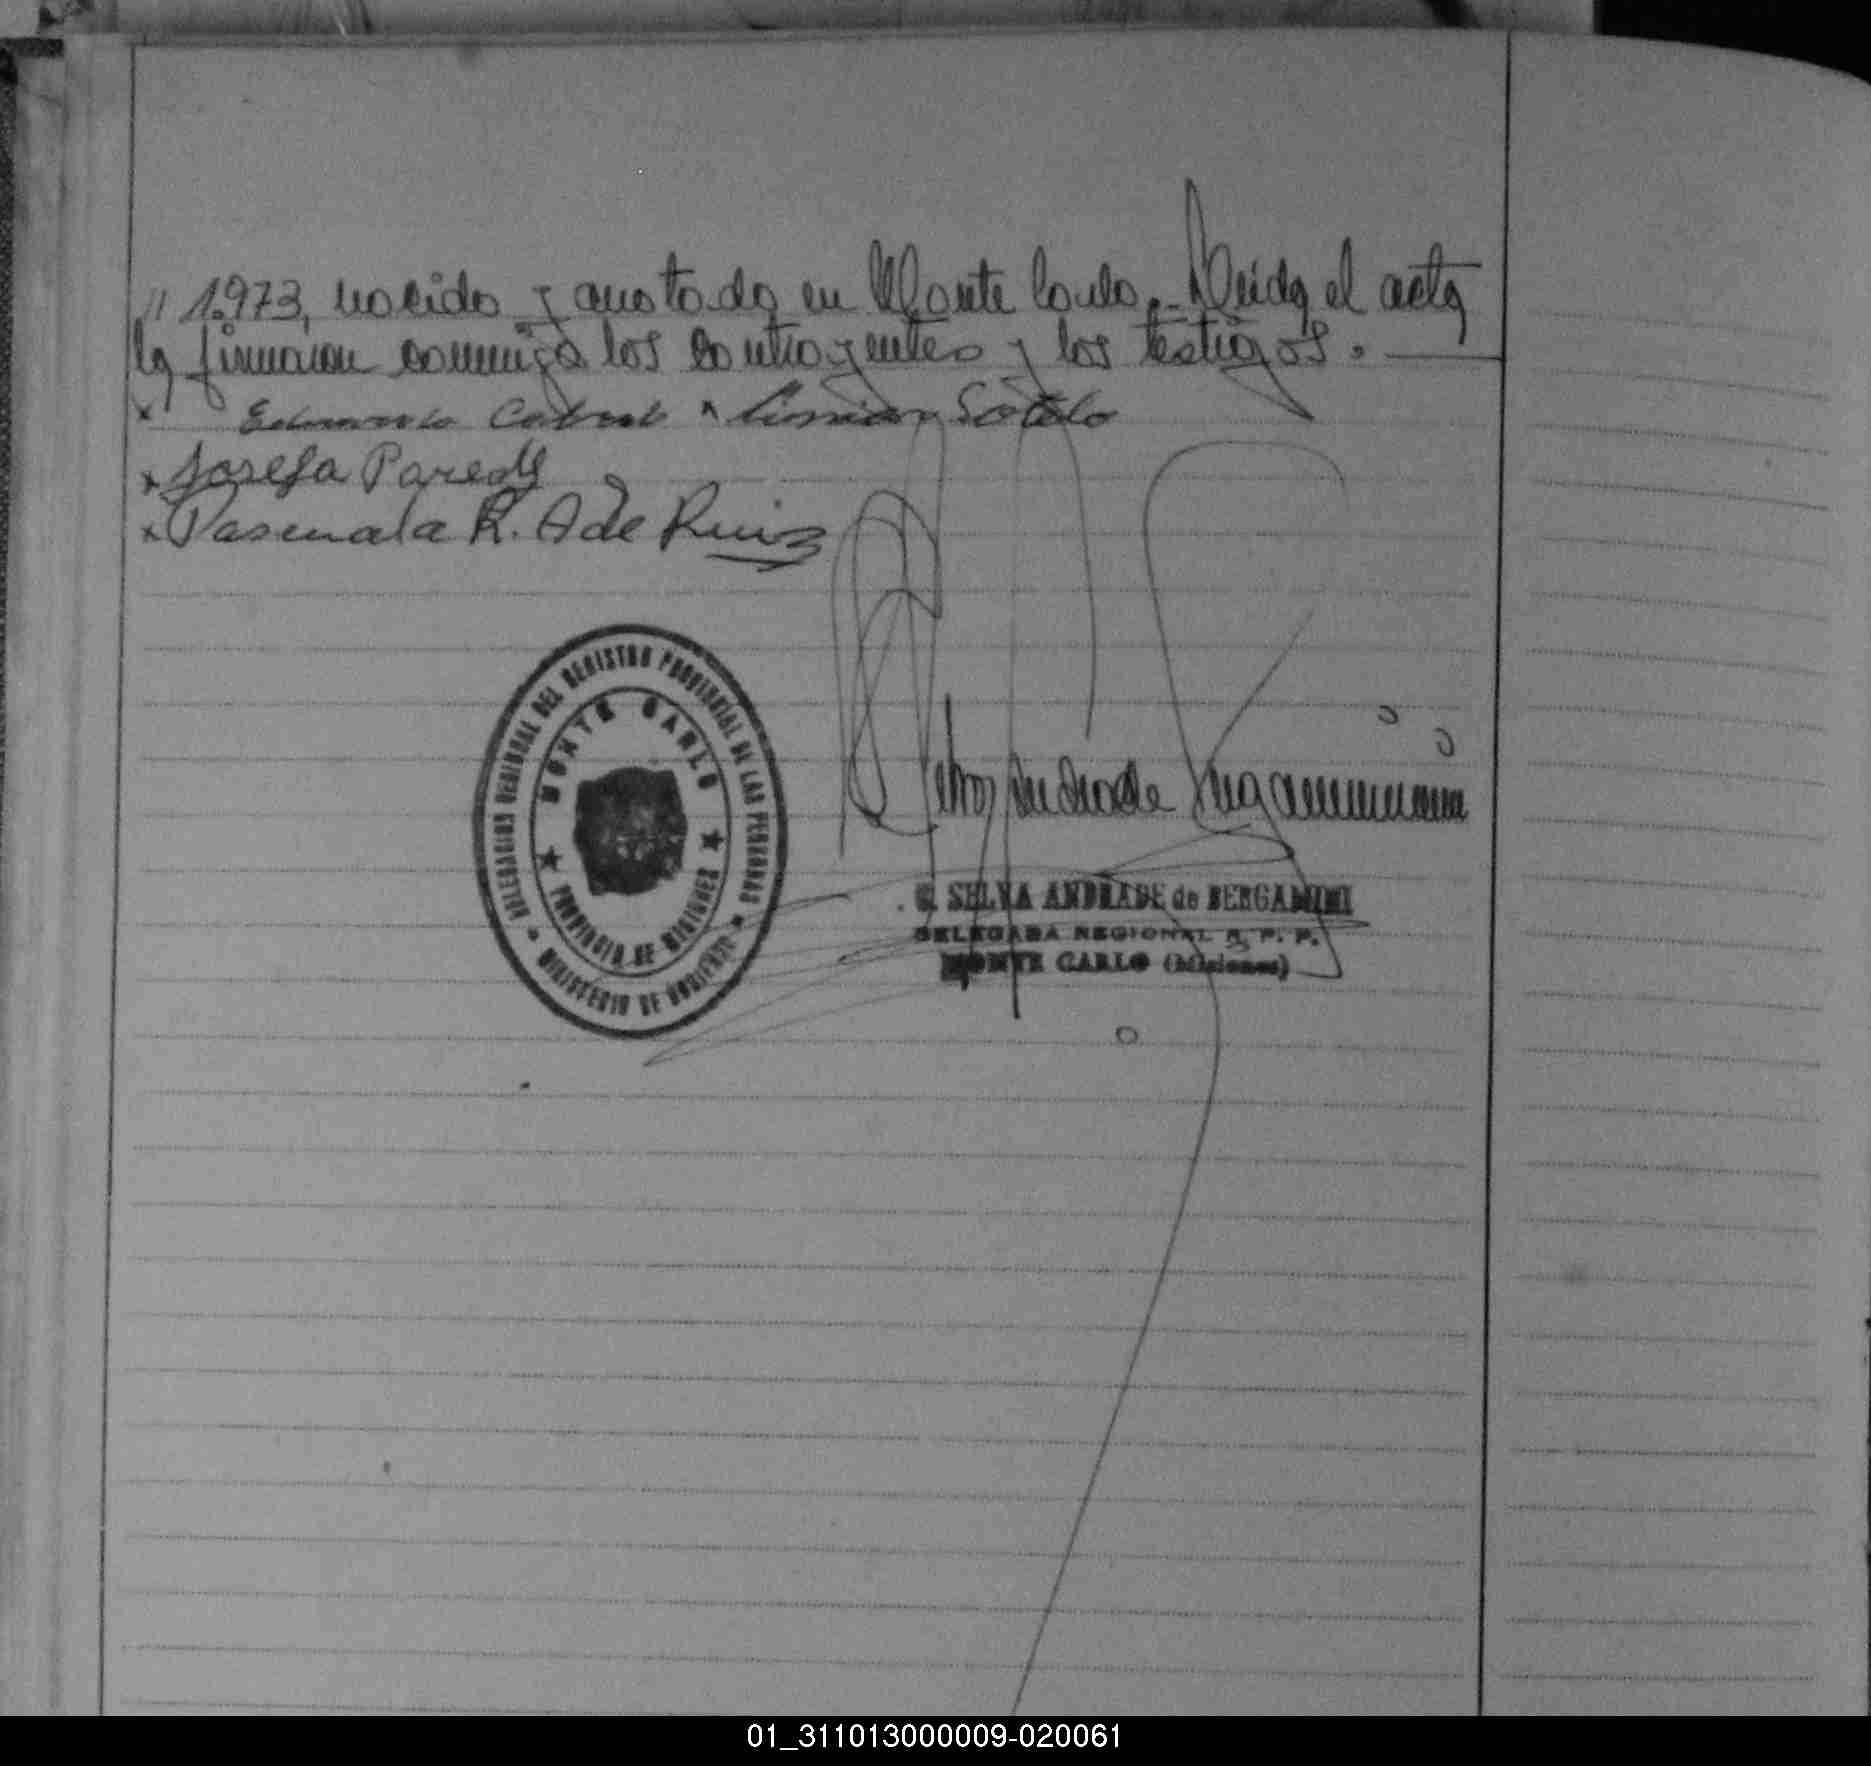 // 1.973, nacido y anotado en Monte Carlo.- Leida el acta
la firmaron conmigo los contrayentes y los testigos. —
x Eduardo Cabral x Simian Sotelo
x Josefa Paredes
x Pascuala R. A de Ruiz
DELEGACION REGIONAL DEL REGISTRO PROVINCIAL DE LAS PERSONAS
MONTE CARLO
★ PROVINCIA DE MISIONES ★
* MINISTERIO DE GOBIERNO *
Selva Andrade Bergamini
G. SELVA ANDRADE de BERGAMINI
DELEGADA REGIONAL R. P. P.
MONTE CARLO (Misiones)
01_311013000009-020061